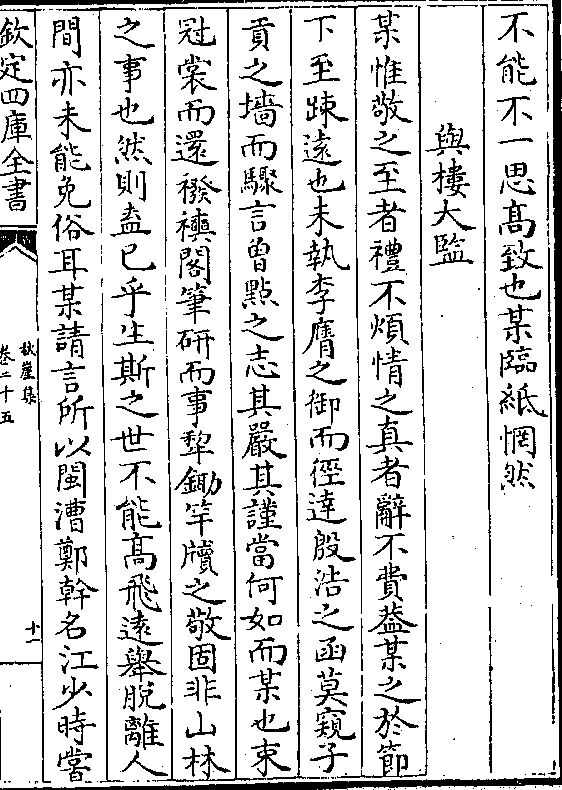 不能不一思髙致也某臨紙惘然
與樓大監
某惟敬之至者禮不煩情之真者辭不費葢某之於節
下至踈遠也未執李膺之御而徑達殷浩之函莫窺子
貢之墻而驟言曾點之志其嚴其謹當何如而某也束
冠裳而還襏襫閣筆研而事犂鋤竿牘之敬固非山林
之事也然則盍已乎生斯之世不能髙飛逺舉脫離人
間亦未能免俗耳某請言所以閩漕鄭幹名江少時嘗
欽定四庫全書
秋崖集
卷二十五
十一